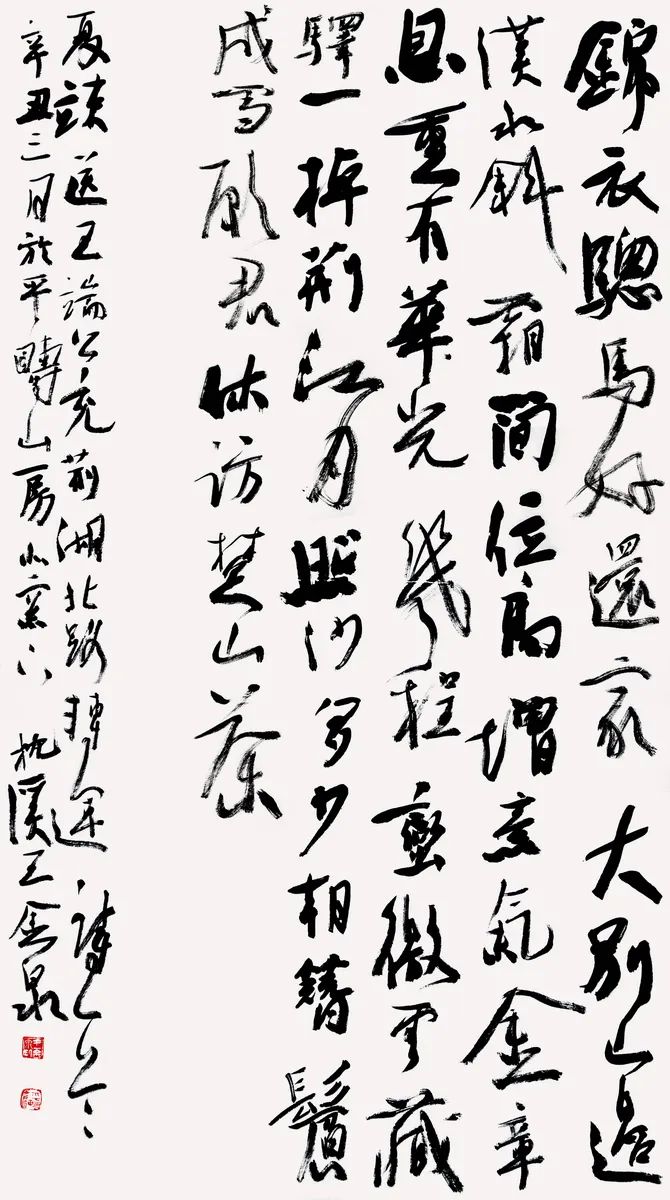 錦衣驄馬好還家大別山邊
漢水斜霜簡位高增意氣金章
恩重有華光幾程蠻徼雲藏
驛一棹荊江月照沙多少朝簪鬢
成雪願君休訪楚山茶
夏竦送王端公充荊湖北路轉運詩
辛丑三月於平疇山房小窗下枕溪王金泉